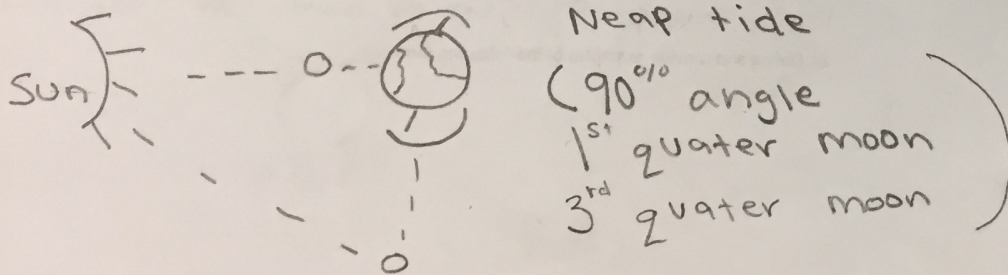 Neap tide
Sun
(90°/° angle
1st quater moon
3rd quater moon )